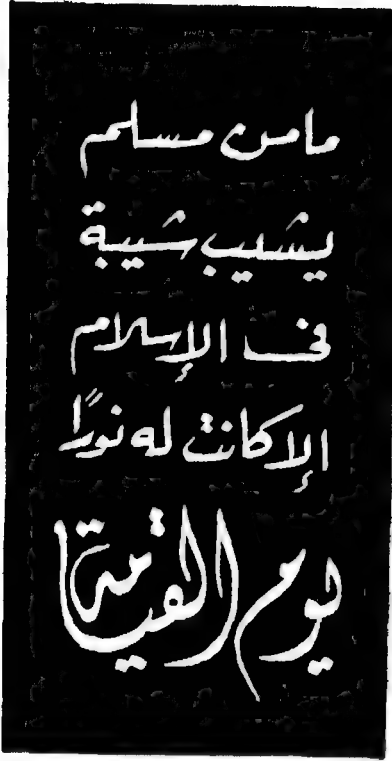 مامن مسلم
يشيب شيبة
في الإسلام
إلا كانت له نورًا
يوم القيامة